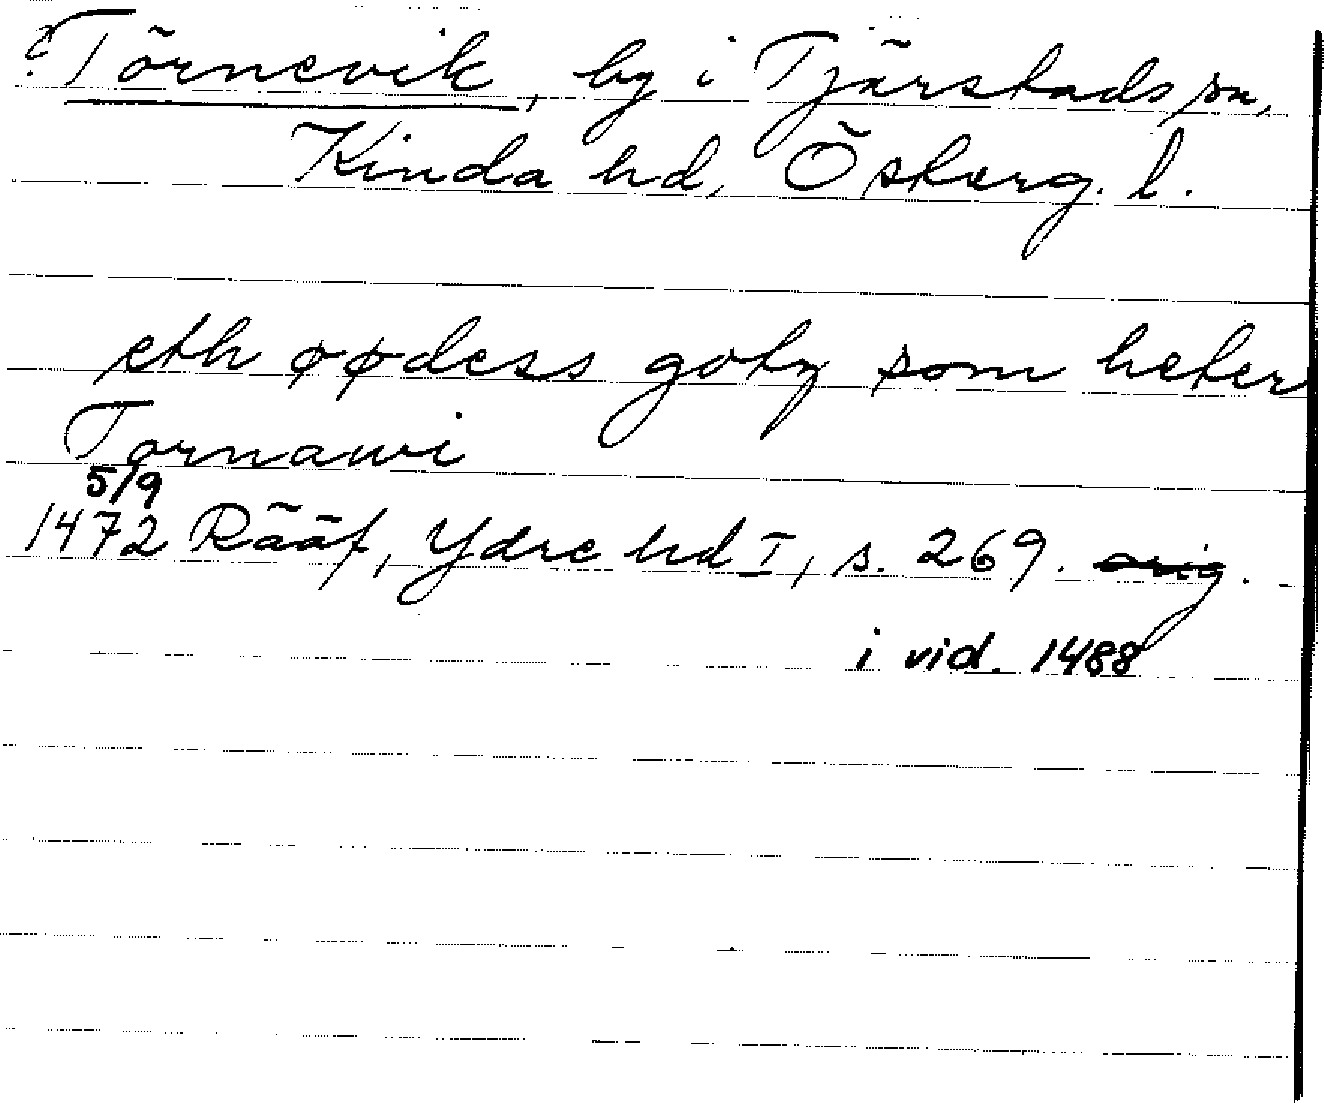 ? Törnevik, by i Tjärstads sn,
Kinda hd, Österg. l.
eth øødess gotz som heter
Tornawi
5/9
1472 Rääf, Ydre hd I, s. 269. orig.
i vid. 1488